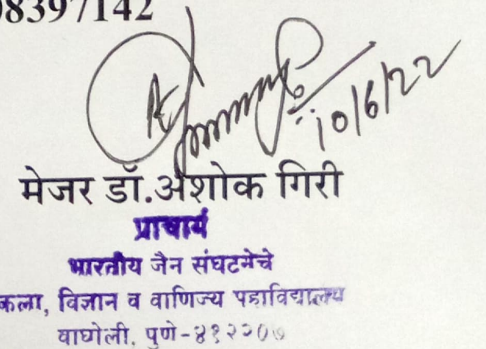 98397142
10/6/22
मेजर डॉ.अशोक गिरी
प्राचार्य
भारतीय जैन संघटनेचे
कला, विज्ञान व वाणिज्य महाविद्यालय
वाघोली, पुणे-४१२२०७